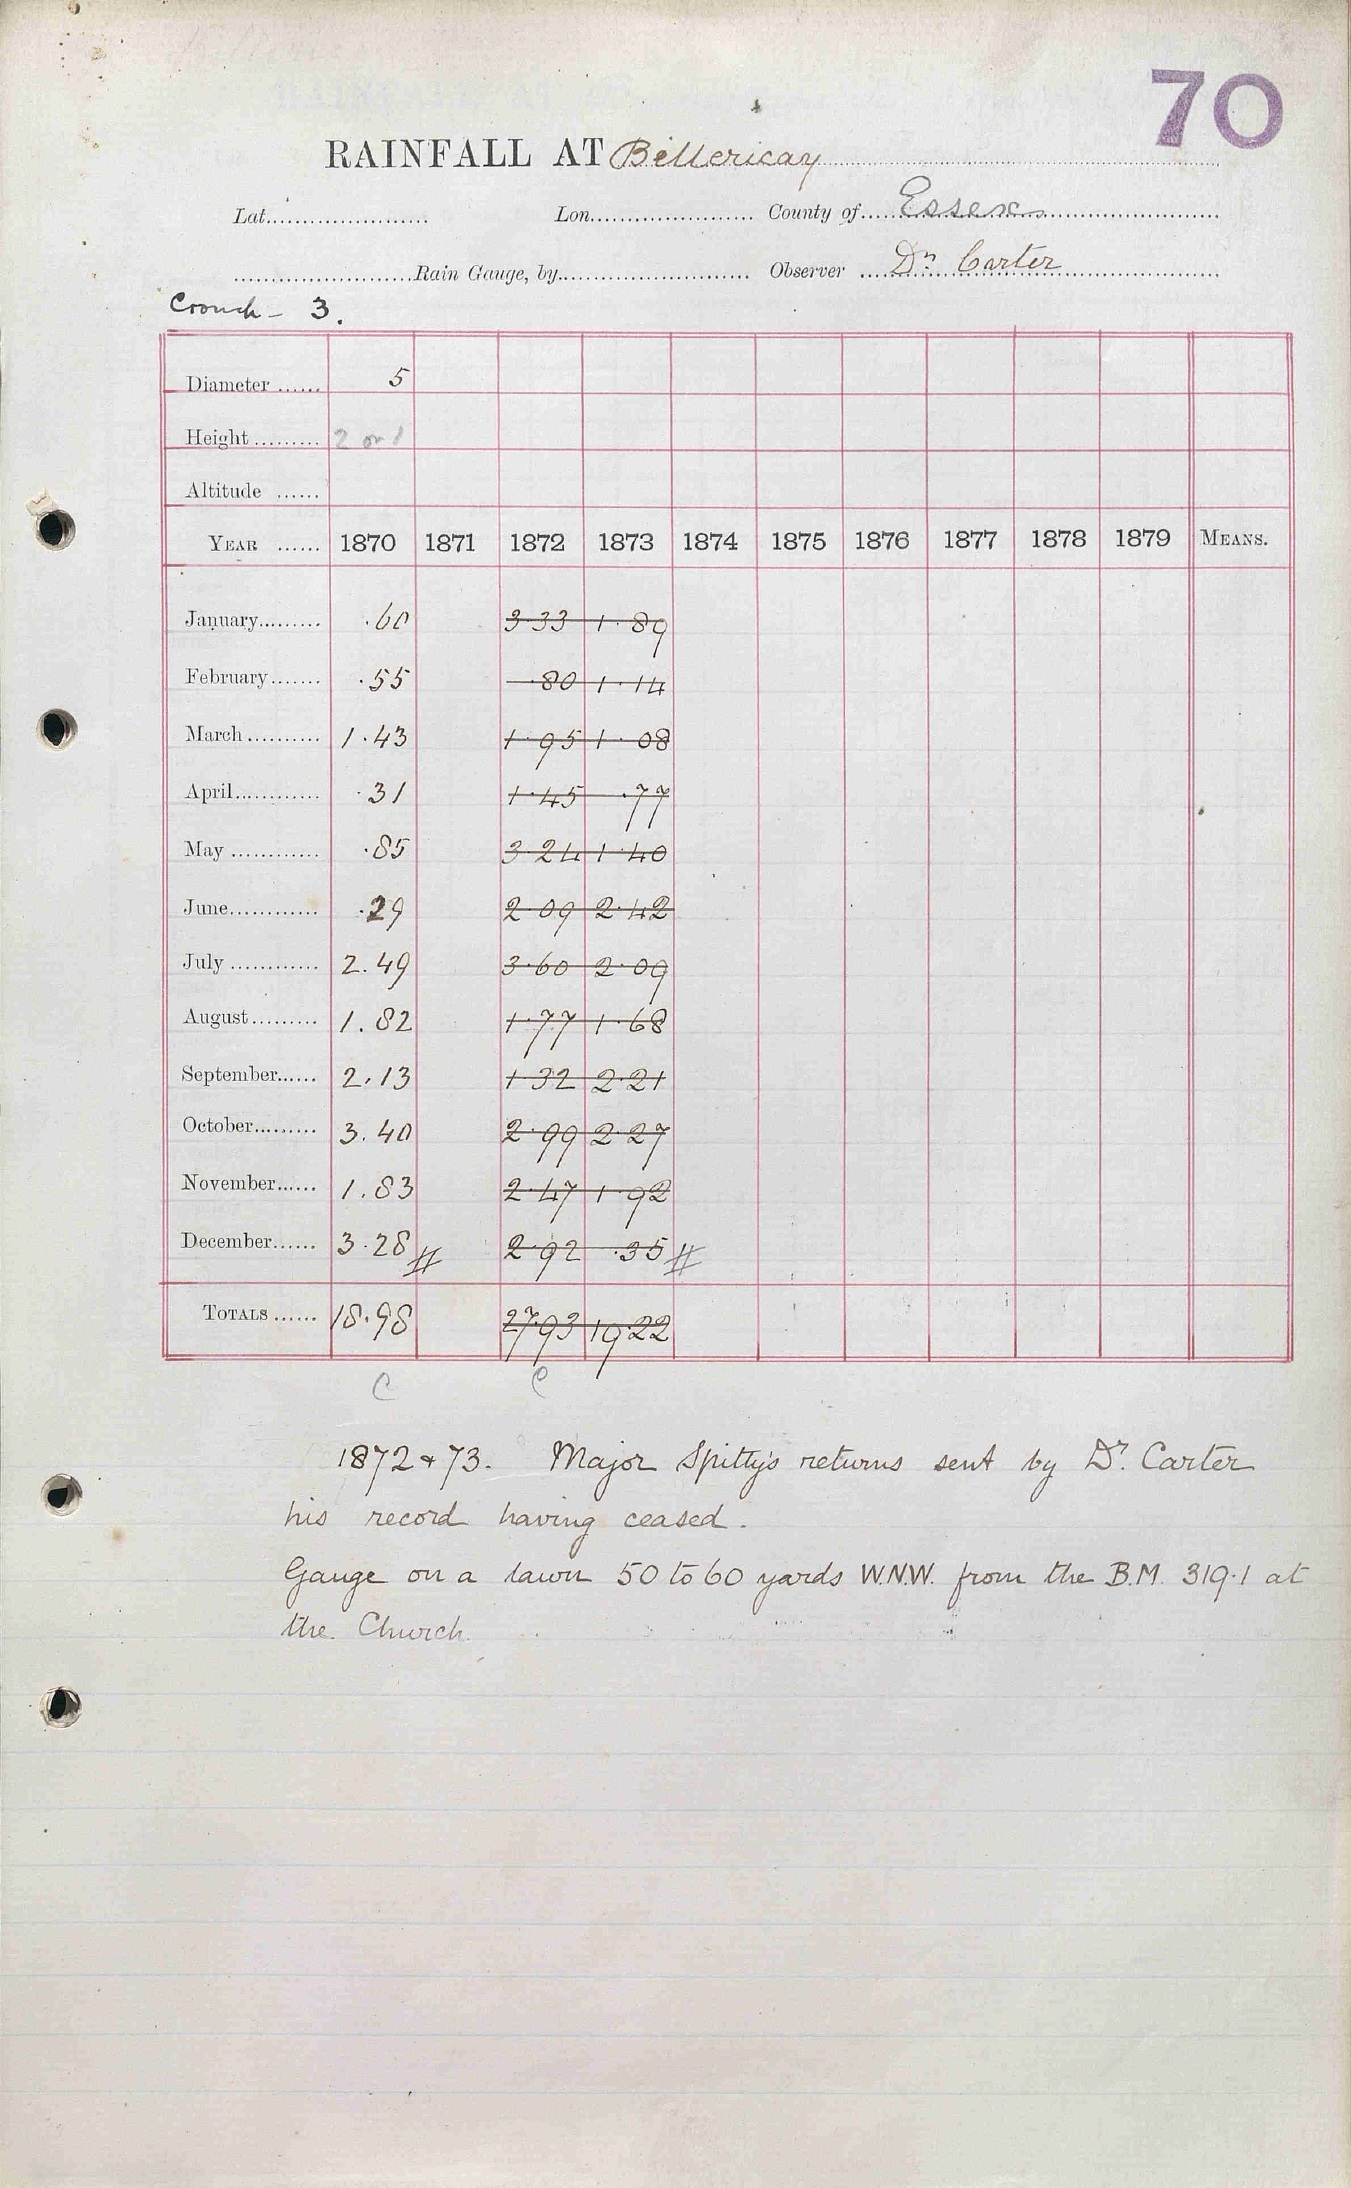 70
RAINFALL AT Billericay
Lat. Lon. County of Essex
Rain Gauge, by Observer Dr. Carter
Crouch - 3.
Diameter 5
Height 2 or 1
Altitude
YEAR 1870 1871 1872 1873 1874 1875 1876 1877 1878 1879 MEANS.
January .60 3.33 1.89
February .55 .80 1.14
March 1.43 1.95 1.08
April .31 1.45 .77
May .85 3.24 1.40
June .29 2.09 2.42
July 2.49 3.60 2.09
August 1.82 1.77 1.68
September 2.13 1.32 2.21
October 3.40 2.99 2.27
November 1.83 2.47 1.92
December 3.28 # 2.92 .35 #
TOTALS 18.98 27.93 19.22
C C
1872 & 73. Major Spitty's returns sent by Dr. Carter
his record having ceased.
Gauge on a lawn 50 to 60 yards W.N.W. from the B.M. 319.1 at
the Church.